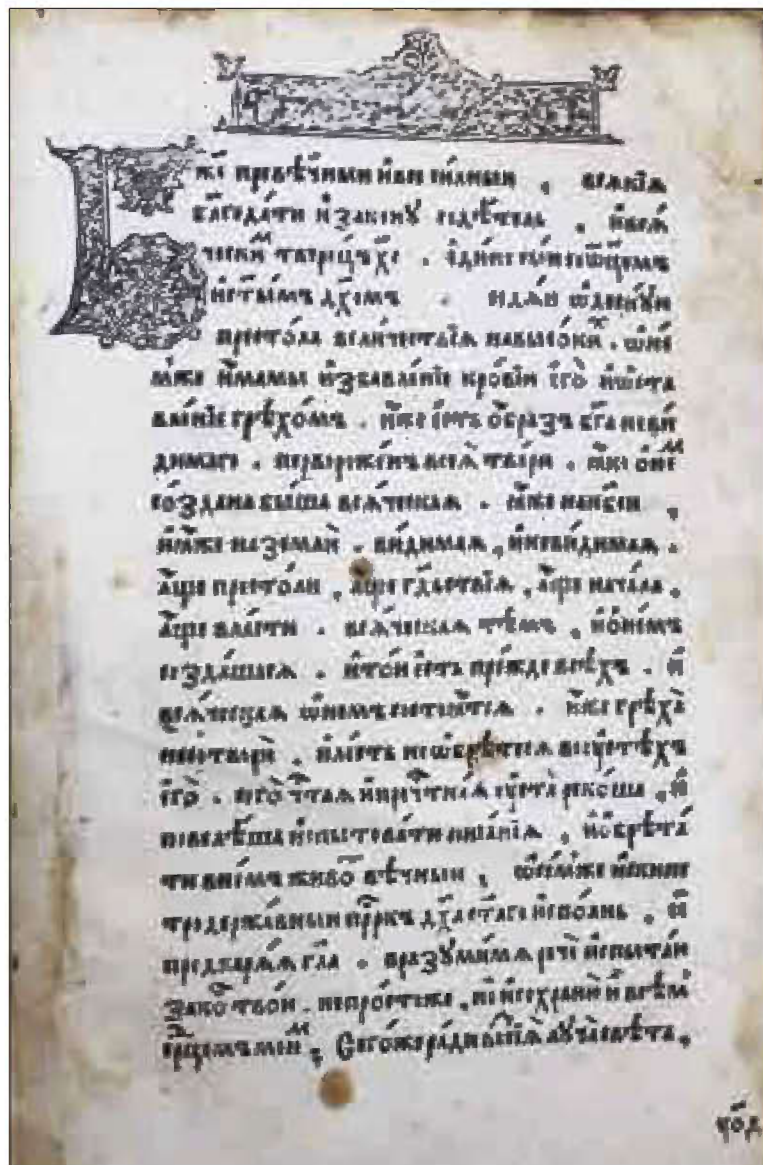 Бж҃е превѣ́чныи и҆ всеси́лныи . всѧ́кїѧ
бл҃года́ти и҆ зако́нꙋ содѣ́тель . и҆ всѧ́
ческиⷨ твори́ще . є҆ди́не со ѻ҆ц҃емъ
и҆ ст҃ы́мъ дх҃омъ . сѣдѧ́и ѡ҆деснꙋ́ю
престо́ла вели́чествїѧ на высо́киⷯ . ѡ҆ не́
мже и҆́мамы и҆збавле́нїе кро́вїи є҆гѡ̀ и҆ ѡ҆ста
вле́нїе грѣхо́мъ . и҆́же є҆́сть ѻ҆́бразъ бг҃а неви́
димаго . перворожде́нъ всеѧ̀ тва́ри . ꙗ҆́ко ѻ҆ не́ⷨ
со́здана бы́ша всѧ́ческаѧ . ꙗ҆́же на нб҃си ,
и҆ ꙗ҆́же на землѝ . ви́димаѧ , и҆ неви́димаѧ .
а҆́ще престо́ли , а҆́ще гд҇ьствїѧ , а҆́ще нача́ла .
а҆́ще вла́сти . всѧ́ческаѧ тѣ́мъ , и҆ ѻ҆ не́мъ
созда́шасѧ . и҆ то́и є҆́сть пре́жде всѣ́хъ . и҆
всѧ́ческаѧ ѡ҆ не́мъ состоѧ́тсѧ . и҆́же грѣха̀
не сотворѝ . и҆ ле́сть не ѡ҆брѣ́тесѧ во ꙋ҆стѣ́хъ
є҆гѡ̀ . є҆гѡ́ же ... ꙋ҆ста̀ реко́ша , и҆
повелѣ́ша и҆спы́товати писа́нїѧ , и҆ ѻ҆брѣта́
ти в не́мъ живо́тъ вѣ́чныи , ѡ҆ не́мже ...
... прⷪ҇ркъ дх҃а ст҃а́го и҆спо́лнь . и҆
предварѧ́ѧ гл҃а . вразꙋми́ мѧ речѐ и҆ спыта́ю
зако́нъ тво́и . не про́сто же , но и҆ сохраню̀ и҆ всѣ́мъ
срⷣцемъ мои́ⷨ . Сегѡ́ же ра́ди ...